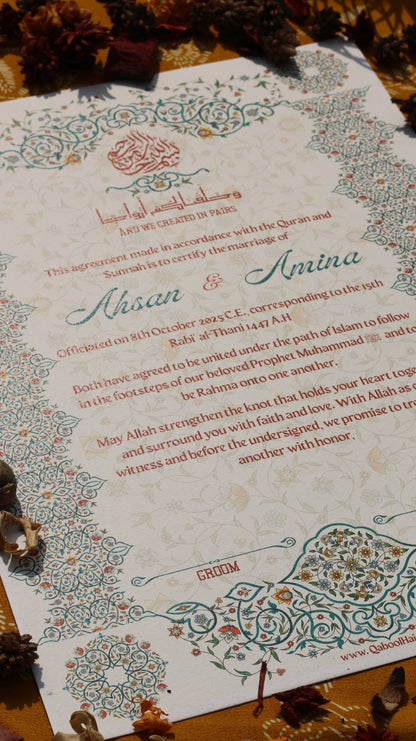 بسم الله الرحمن الرحيم
وخلقناكم أزواجا
AND WE CREATED IN PAIRS
This agreement made in accordance with the Quran and
Sunnah is to certify the marriage of
Ahsan & Amina
Officiated on 8th October 2025 C.E. corresponding to the 15th
Rabi' al-Thani 1447 A.H
Both have agreed to be united under the path of Islam to follow
in the footsteps of our beloved Prophet Muhammad ﷺ, and
be Rahma onto one another.
May Allah strengthen the knot that holds your heart toge
and surround you with faith and love. With Allah as
witness and before the undersigned, we promise to tr
another with honor.
GROOM
www.QaboolHa